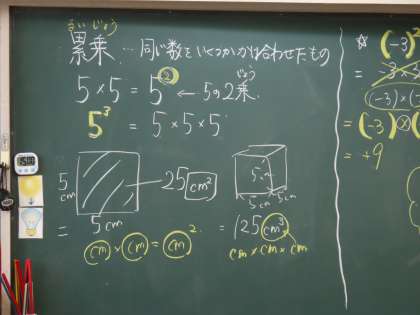 るいじょう
累乗…同じ数をいくつかかけ合わせたもの
じょう
5×5 = 5² ← 5の2乗.
5³ = 5×5×5
5cm
25cm²
5cm
5cm
5cm
5cm
= 125cm³
cm × cm = cm²
cm×cm×cm
☆ (-3)²
= -3×
(-3)×(
= (-3)×(
= +9